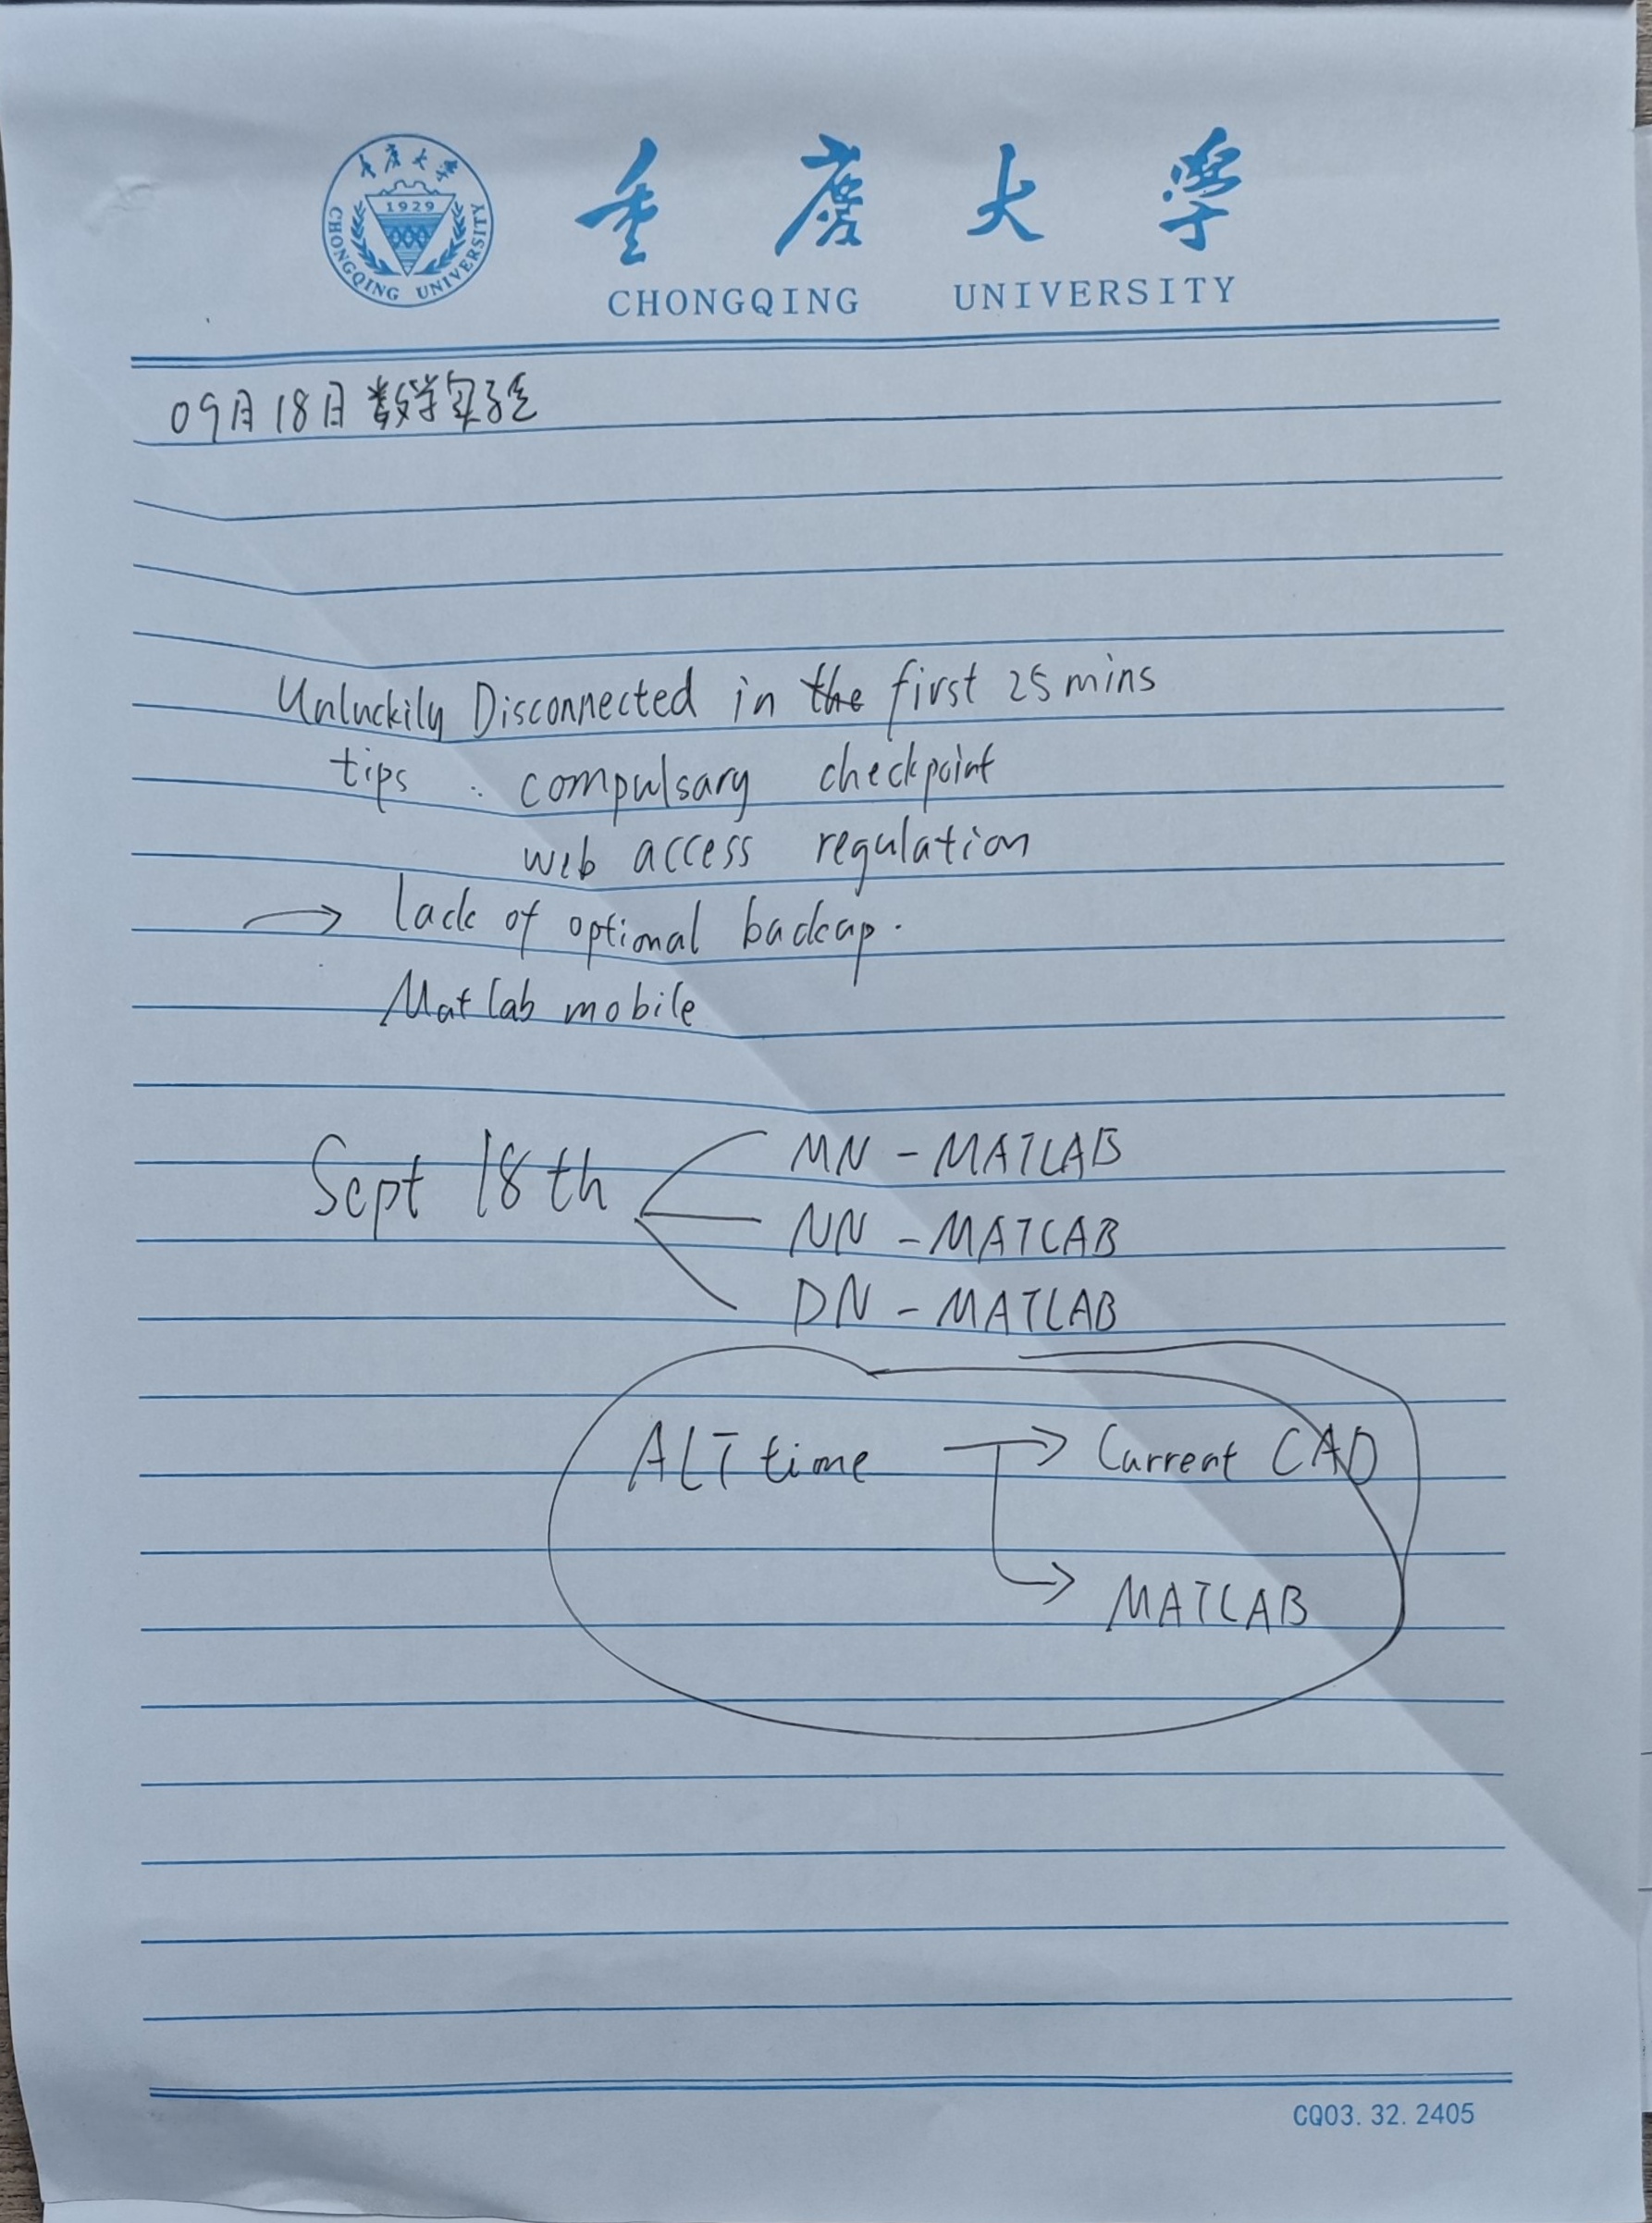 重庆大学
1929
CHONGQING UNIVERSITY
重庆大学
CHONGQING UNIVERSITY
09月18日数学实验
Unluckily Disconnected in the first 25 mins
tips : compulsary checkpoint
web access regulation
→ lack of optional backup.
Matlab mobile
Sept 18th
MN - MATLAB
NN - MATLAB
DN - MATLAB
ALT time → Current CAD
→ MATLAB
CQ03.32.2405